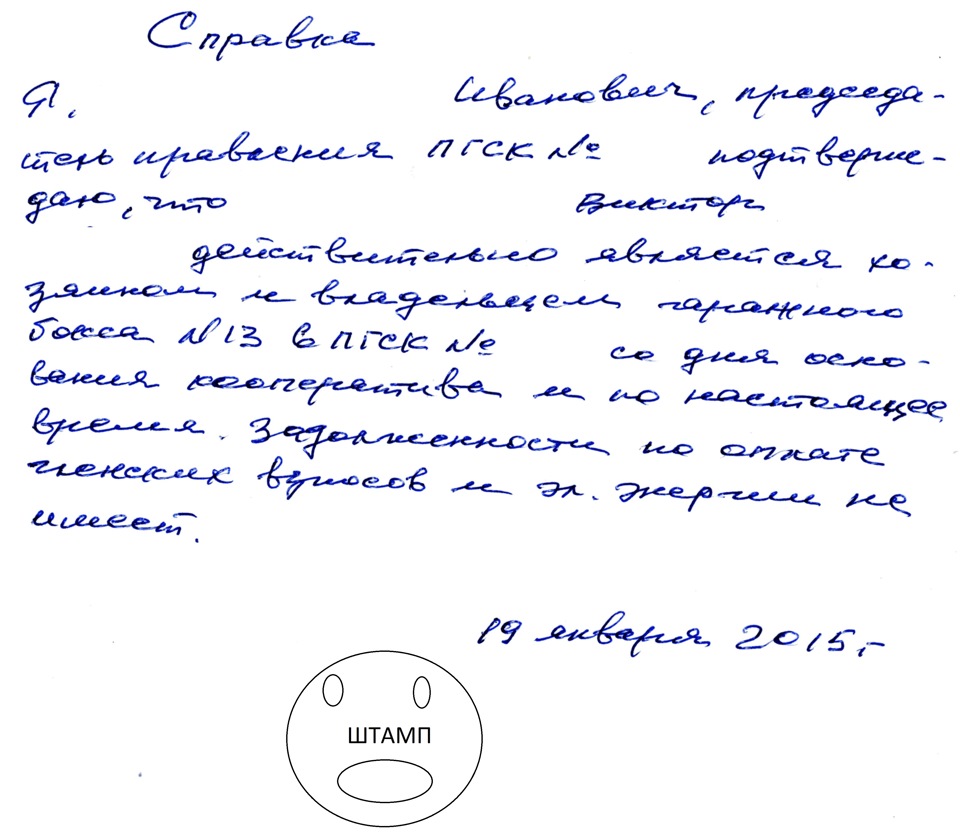 Справка
Я, Иванович, председа-
тель правления ПГСК № подтверж-
даю, что Виктор
действительно является хо-
зяином и владельцем гаражного
бокса №13 в ПГСК № со дня осно-
вания кооператива и по настоящее
время. Задолженности по оплате
членских взносов и эл. энергии не
имеет.
19 января 2015 г.
ШТАМП